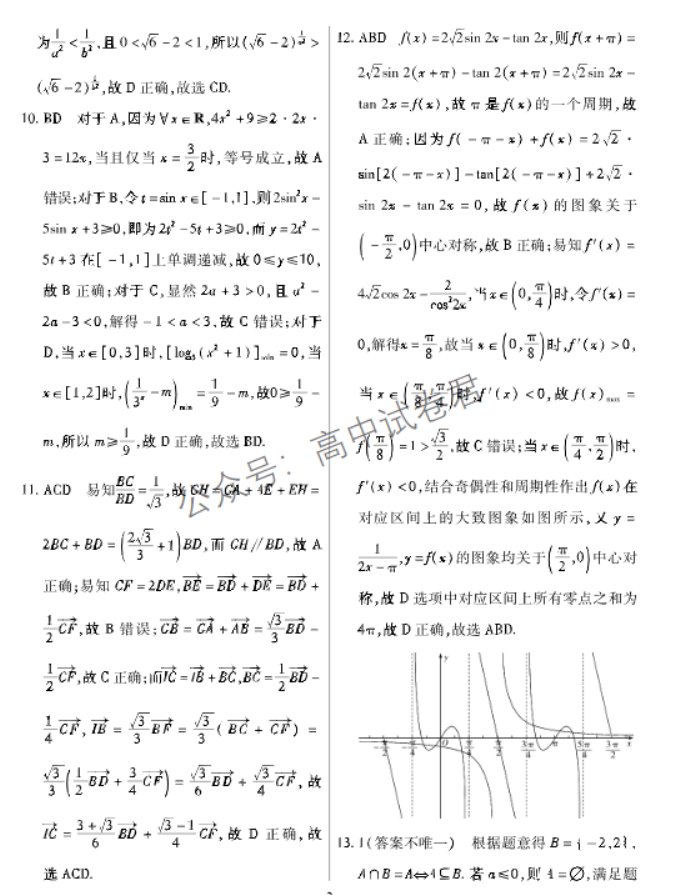 为1/a²<1/b²,且0<√6-2<1,所以(√6-2)^(1/a²)>
(√6-2)^(1/b²),故 D 正确,故选 CD.
10. BD 对于 A,因为∀x∈R,4x²+9≥2·2x·
3=12x,当且仅当x=3/2时,等号成立,故 A
错误;对于 B,令t=sin x∈[-1,1],则2sin²x-
5sin x+3≥0,即为2t²-5t+3≥0,而y=2t²-
5t+3在[-1,1]上单调递减,故0≤y≤10,
故 B 正确;对于 C,显然2a+3>0,且a²-
2a-3<0,解得-1<a<3,故 C 错误;对于
D,当x∈[0,3]时,[log₃(x²+1)]min=0,当
x∈[1,2]时,(1/3ˣ-m)min=1/9-m,故0≥1/9-
m,所以m≥1/9,故 D 正确,故选 BD.
11. ACD 易知BC/BD=1/√3,故GH=GA+AE+EH=
2BC+BD=(2√3/3+1)BD,而GH//BD,故 A
正确;易知CF=2DE,BE→=BD→+DE→=BD→+
1/2CF→,故 B 错误;CB→=CA→+AB→=√3/3BD→-
1/2CF→,故 C 正确;而IC→=IB→+BC→,BC→=1/2BD→-
1/4CF→,IB→=√3/3BF→=√3/3(BC→+CF→)=
√3/3(1/2BD→+3/4CF→)=√3/6BD→+√3/4CF→,故
IC→=(3+√3)/6BD→+(√3-1)/4CF→,故 D 正确,故
选 ACD.
12. ABD f(x)=2√2sin 2x-tan 2x,则f(x+π)=
2√2sin 2(x+π)-tan 2(x+π)=2√2sin 2x-
tan 2x=f(x),故π是f(x)的一个周期,故
A 正确;因为f(-π-x)+f(x)=2√2·
sin[2(-π-x)]-tan[2(-π-x)]+2√2·
sin 2x-tan 2x=0,故f(x)的图象关于
(-π/2,0)中心对称,故 B 正确;易知f′(x)=
4√2cos 2x-2/cos²2x,当x∈(0,π/4)时,令f′(x)=
0,解得x=π/8,故当x∈(0,π/8)时,f′(x)>0,
当x∈(π/8,π/4)时,f′(x)<0,故f(x)max=
f(π/8)=1>√3/2,故 C 错误;当x∈(π/4,π/2)时,
f′(x)<0,结合奇偶性和周期性作出f(x)在
对应区间上的大致图象如图所示,又y=
1/(2x-π),y=f(x)的图象均关于(π/2,0)中心对
称,故 D 选项中对应区间上所有零点之和为
4π,故 D 正确,故选 ABD.
y
-π/2 -π/4 O π/4 π/2 3π/4 π 5π/4 3π/2 x
13. 1(答案不唯一) 根据题意得B={-2,2},
A∩B=A⇔A⊆B.若a≤0,则A=∅,满足题
公众号：高中试卷君